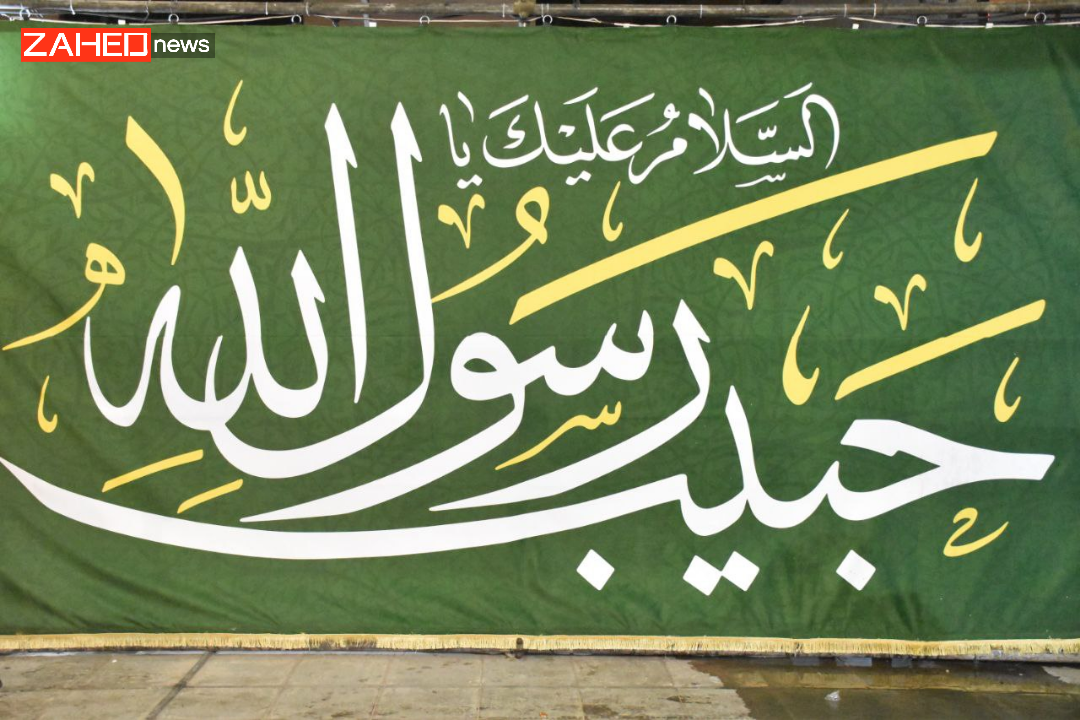 ZAHED news
السَّلامُ عَلَيْكَ يا
حبيب رسول اللهِ